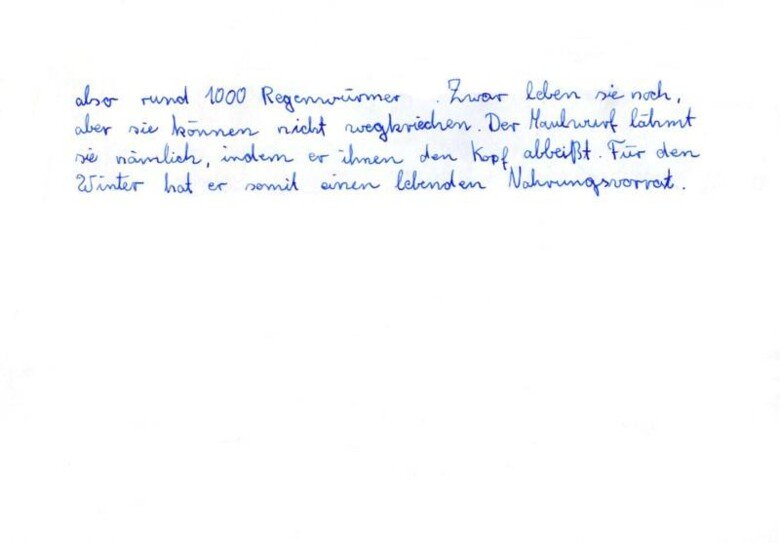 also rund 1000 Regenwürmer. Zwar leben sie noch,
aber sie können nicht wegkriechen. Der Maulwurf lähmt
sie nämlich, indem er ihnen den Kopf abbeißt. Für den
Winter hat er somit einen lebenden Nahrungsvorrat.